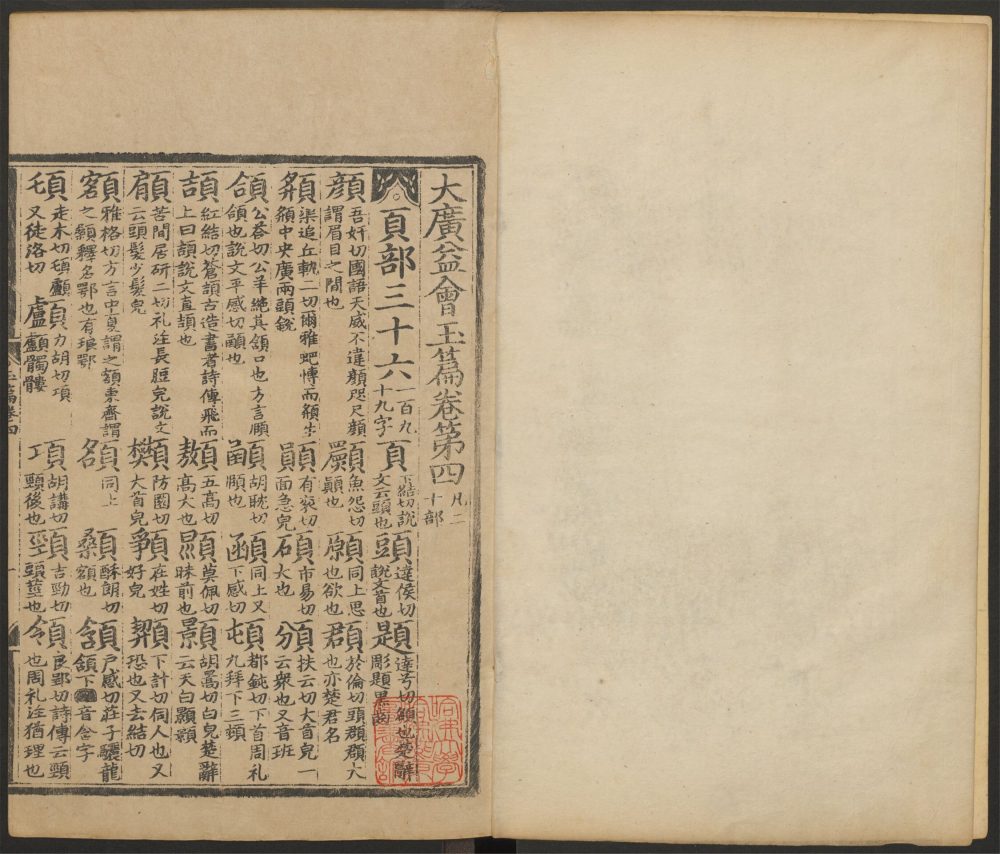 大廣益會玉篇卷第四 凡二十部
頁部三十六 一百九十九字 頁 下結切說文云頭也 頭 達侯切說文首也 題 達兮切額也楚辭彫題黑
顏 吾姧切國語天威不違顏咫尺顏謂眉目之間也 願 魚怨切顛也 願 同上思也欲也 頵 於倫切頭頵頵大也亦楚君名
頯 渠追丘軌二切爾雅蚆博而頯中央廣兩頭銳 有衮切面急皃 碩 市易切大也 頒 扶云切大首皃一云衆也又音班
頜 公荅切公羊絕其頜口也方言頤頜也說文乎感切顄也 顄 胡耽切頤也 同上又下感切 頓 都鈍切下首周礼九拜下三頓
頡 紅結切蒼頡古造書者詩傳飛而上曰頡說文直頸也 五高切高大也 莫佩切昧前也 顥 胡暠切白皃楚辭云天白顥顥
顅 苦閒居研二切礼注長脰皃說文云頭髮少髮皃 防園切大首皃 在姓切好皃 下計切伺人也又恐也又去結切
額 雅格切方言中夏謂之額東齊謂之顙釋名鄂也有垠鄂 同上 顙 酥朗切額也 頷 戶感切莊子驪龍頷下 音含字
走木切頊顱 顱 力胡切項顱髑髏 項 胡講切頸後也 頸 吉勁切頭莖也 領 良郢切詩傳云頸也周礼注猶理也
又徒洛切
玉篇卷四